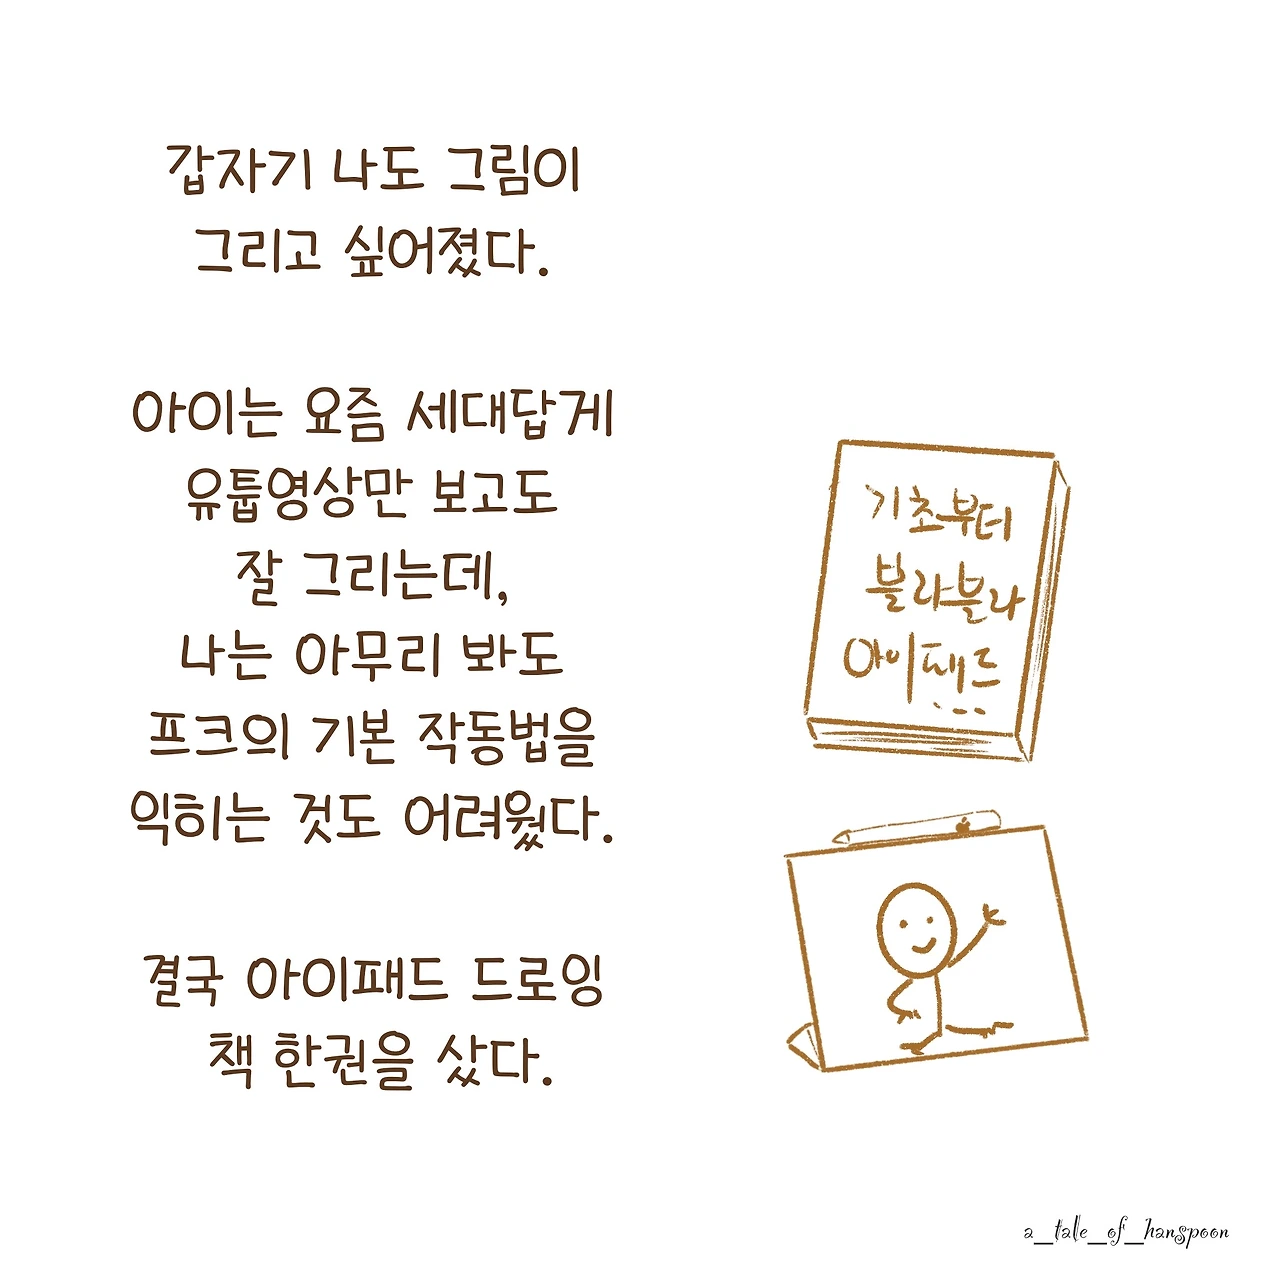 갑자기 나도 그림이
그리고 싶어졌다.
아이는 요즘 세대답게
유툽영상만 보고도
잘 그리는데,
나는 아무리 봐도
프크의 기본 작동법을
익히는 것도 어려웠다.
결국 아이패드 드로잉
책 한권을 샀다.
기초부터
블라블라
아이패드
...
a_tale_of_hanspoon